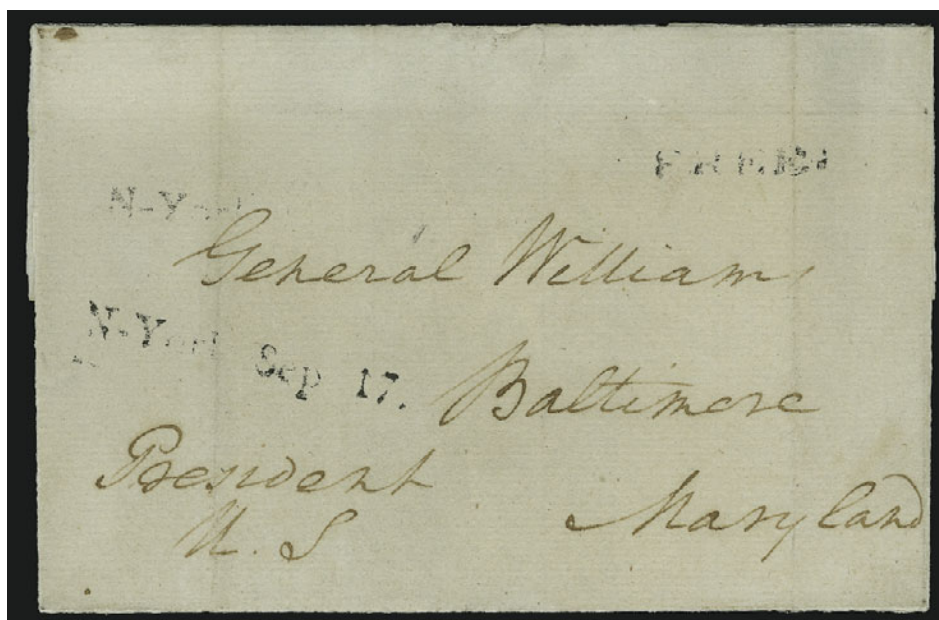 FREE
N-Yo
General Williams
N-York Sep 17.
Baltimore
President
U. S
Maryland